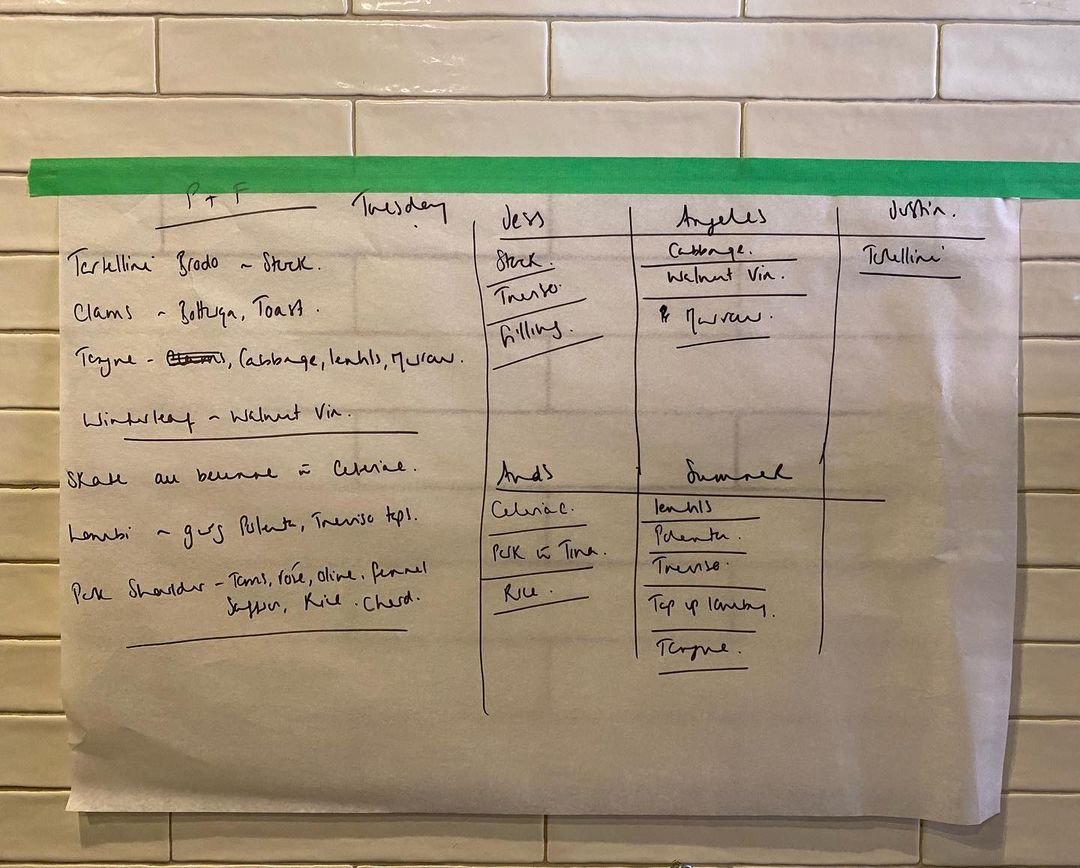 P + F
Tuesday
Tortellini Brodo ~ Stock.
Clams ~ Bottarga, Toast.
Tongue - Cabbage, lentils, Marrow.
Winterleaf ~ Walnut Vin.
Skate au beurre c̄ Celeriac.
~ gorg Polenta, Treviso tops.
Pork Shoulder - Toms, rosé, olive, fennel
Saffron, Rice. Chard.
Jess
Stock.
Treviso.
filling.
Angeles
Cabbage.
Walnut Vin.
Marrow.
Justin.
Tortellini
Ands
Celeriac.
Pork
Rice.
Summer
lentils
Polenta.
Treviso.
Top up
Tongue.